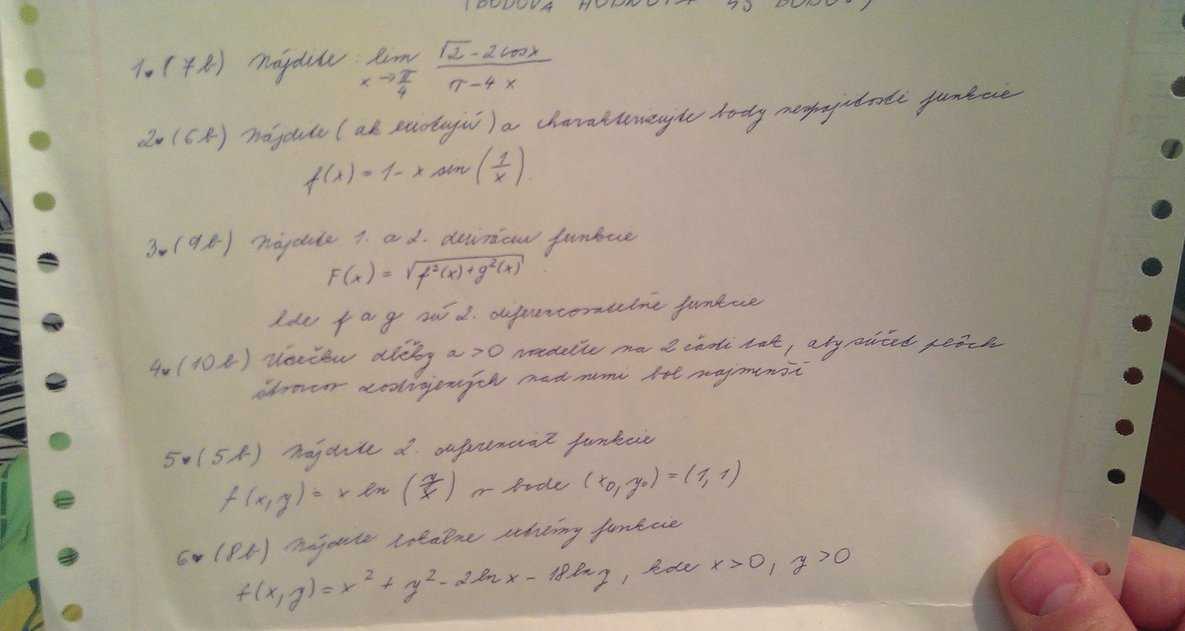 (BODOVÁ HODNOTA 45 BODOV)
1. (7b) Nájdite: lim x→π/4 (√2 - 2cosx)/(π - 4x)
2. (6b) Nájdite (ak existujú) a charakterizujte body nespojitosti funkcie
f(x) = 1 - x sin (1/x).
3. (9b) Nájdite 1. a 2. deriváciu funkcie
F(x) = √(f²(x) + g²(x))
kde f a g sú 2. diferencovateľné funkcie
4. (10b) Úsečku dĺžky a > 0 rozdeľte na 2 časti tak, aby súčet plôch
štvorcov zostrojených nad nimi bol najmenší
5. (5b) Nájdite 2. diferenciál funkcie
f(x,y) = x ln (y/x) v bode (x₀, y₀) = (1, 1)
6. (8b) Nájdite lokálne extrémy funkcie
f(x,y) = x² + y² - 2lnx - 18lny, kde x>0, y>0